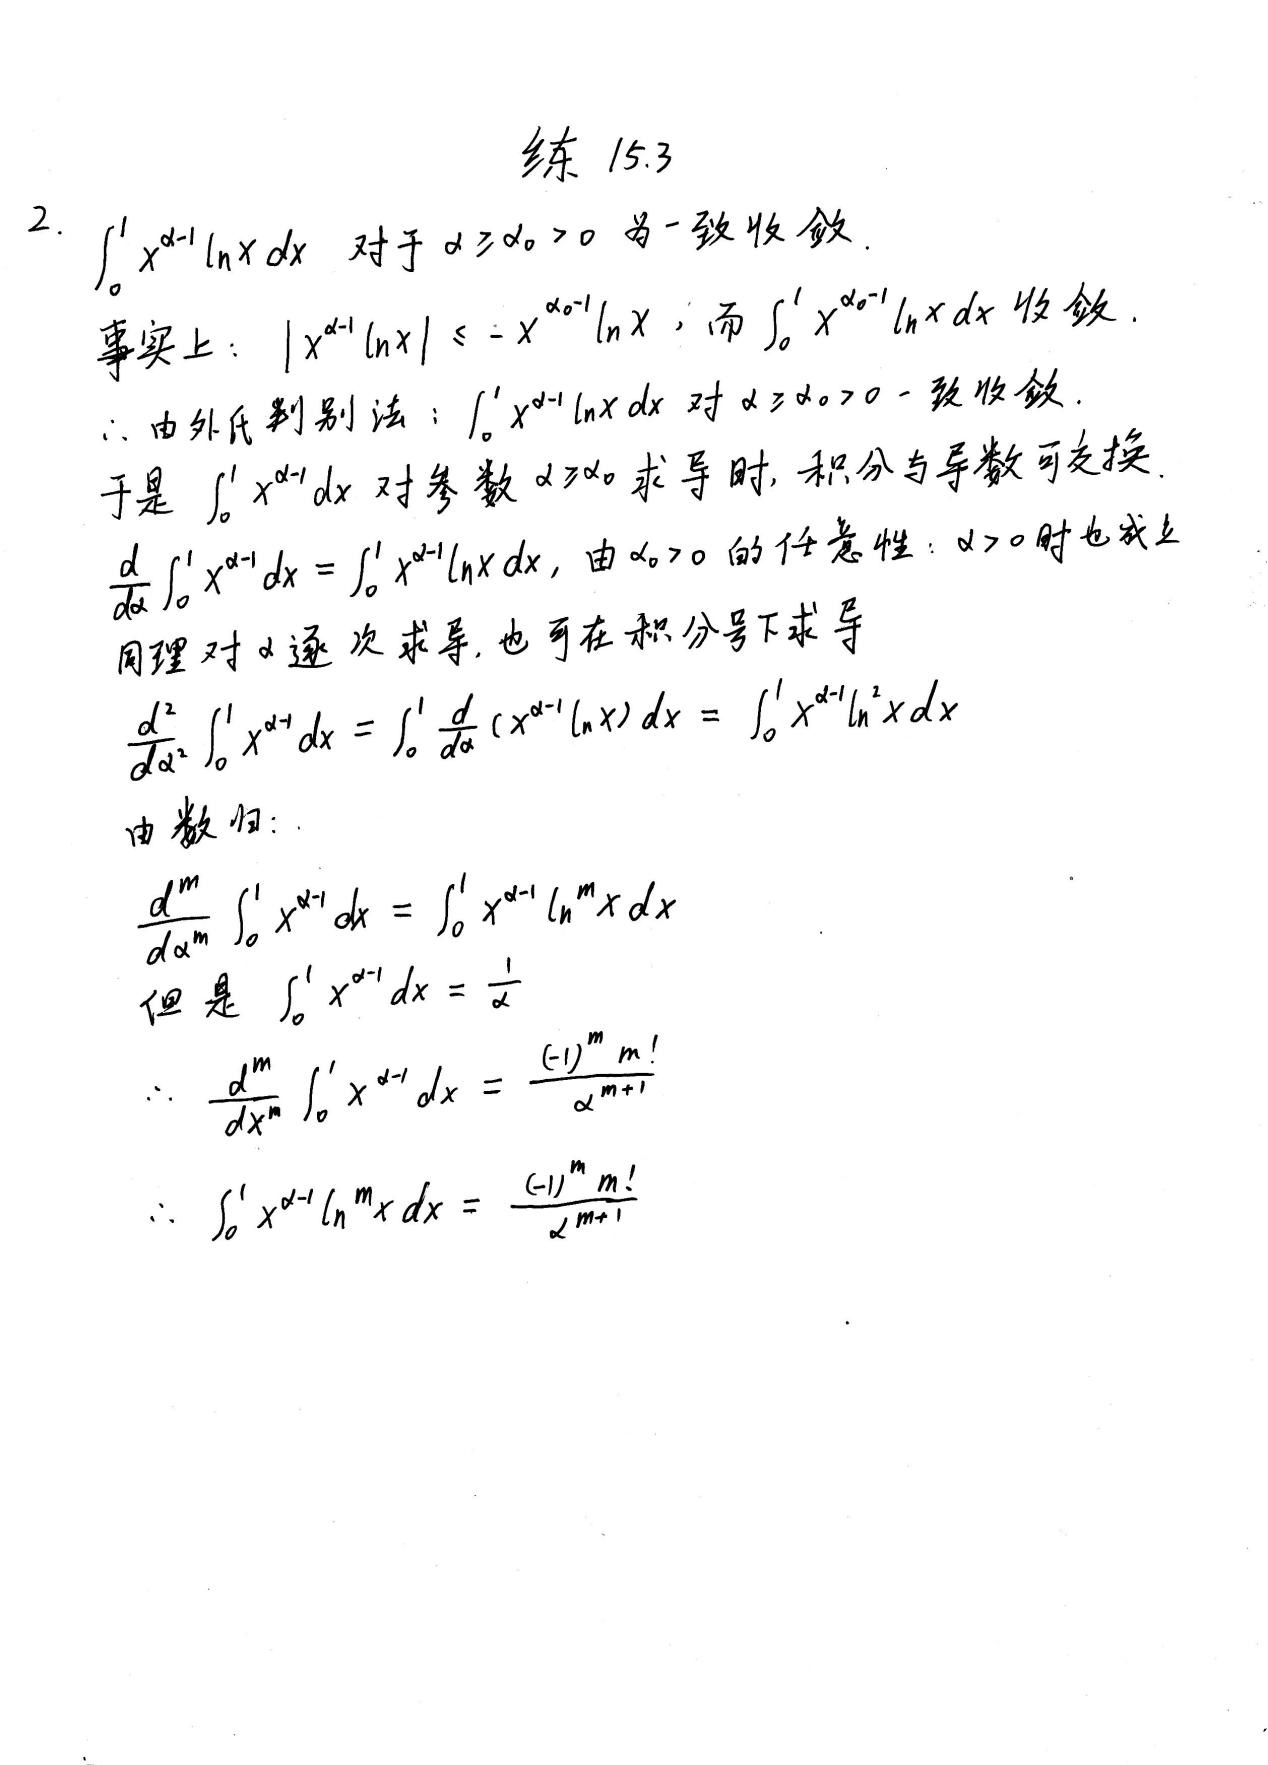 练 15.3
2. ∫₀¹ x^{α-1} ln x dx 对于 α ≥ α₀ > 0 为一致收敛.
事实上: |x^{α-1} ln x| ≤ -x^{α₀-1} ln x, 而 ∫₀¹ x^{α₀-1} ln x dx 收敛.
∴ 由外氏判别法: ∫₀¹ x^{α-1} ln x dx 对 α ≥ α₀ > 0 一致收敛.
于是 ∫₀¹ x^{α-1} dx 对参数 α ≥ α₀ 求导时, 积分与导数可交换.
d/dα ∫₀¹ x^{α-1} dx = ∫₀¹ x^{α-1} ln x dx, 由 α₀ > 0 的任意性: α > 0 时也成立
同理对 α 逐次求导, 也可在积分号下求导
d²/dα² ∫₀¹ x^{α-1} dx = ∫₀¹ d/dα (x^{α-1} ln x) dx = ∫₀¹ x^{α-1} ln² x dx
由数归:
d^m/dα^m ∫₀¹ x^{α-1} dx = ∫₀¹ x^{α-1} ln^m x dx
但是 ∫₀¹ x^{α-1} dx = 1/α
∴ d^m/dx^m ∫₀¹ x^{α-1} dx = (-1)^m m! / α^{m+1}
∴ ∫₀¹ x^{α-1} ln^m x dx = (-1)^m m! / α^{m+1}